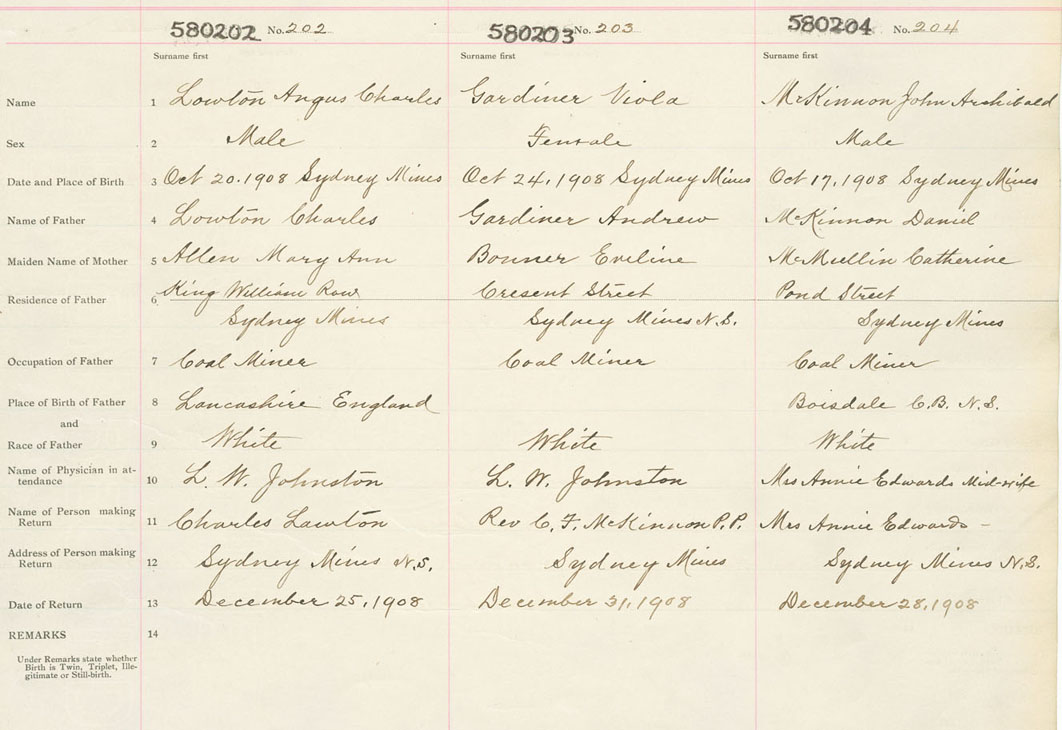 580202 No. 202 580203 No. 203 580204 No. 204
Surname first Surname first Surname first
Name 1 Lowton Angus Charles Gardiner Viola McKinnon John Archibald
Sex 2 Male Female Male
Date and Place of Birth 3 Oct 20.1908 Sydney Mines Oct 24,1908 Sydney Mines Oct 17,1908 Sydney Mines
Name of Father 4 Lowton Charles Gardiner Andrew McKinnon Daniel
Maiden Name of Mother 5 Allen Mary Ann Bonner Eveline McMullin Catherine
Residence of Father 6 King William Row Cresent Street Pond Street
Sydney Mines Sydney Mines N.S. Sydney Mines
Occupation of Father 7 Coal Miner Coal Miner Coal Miner
Place of Birth of Father 8 Lancashire England Boisdale C.B. N.S.
and
Race of Father 9 White White White
Name of Physician in at-
tendance 10 L. W. Johnston L. W. Johnston Mrs Annie Edwards Mid-wife
Name of Person making
Return 11 Charles Lawton Rev C. F. McKinnon P.P. Mrs Annie Edwards -
Address of Person making
Return 12 Sydney Mines N.S. Sydney Mines Sydney Mines N.S.
Date of Return 13 December 25,1908 December 31,1908 December 28,1908
REMARKS 14
Under Remarks state whether
Birth is Twin, Triplet, Ille-
gitimate or Still-birth.